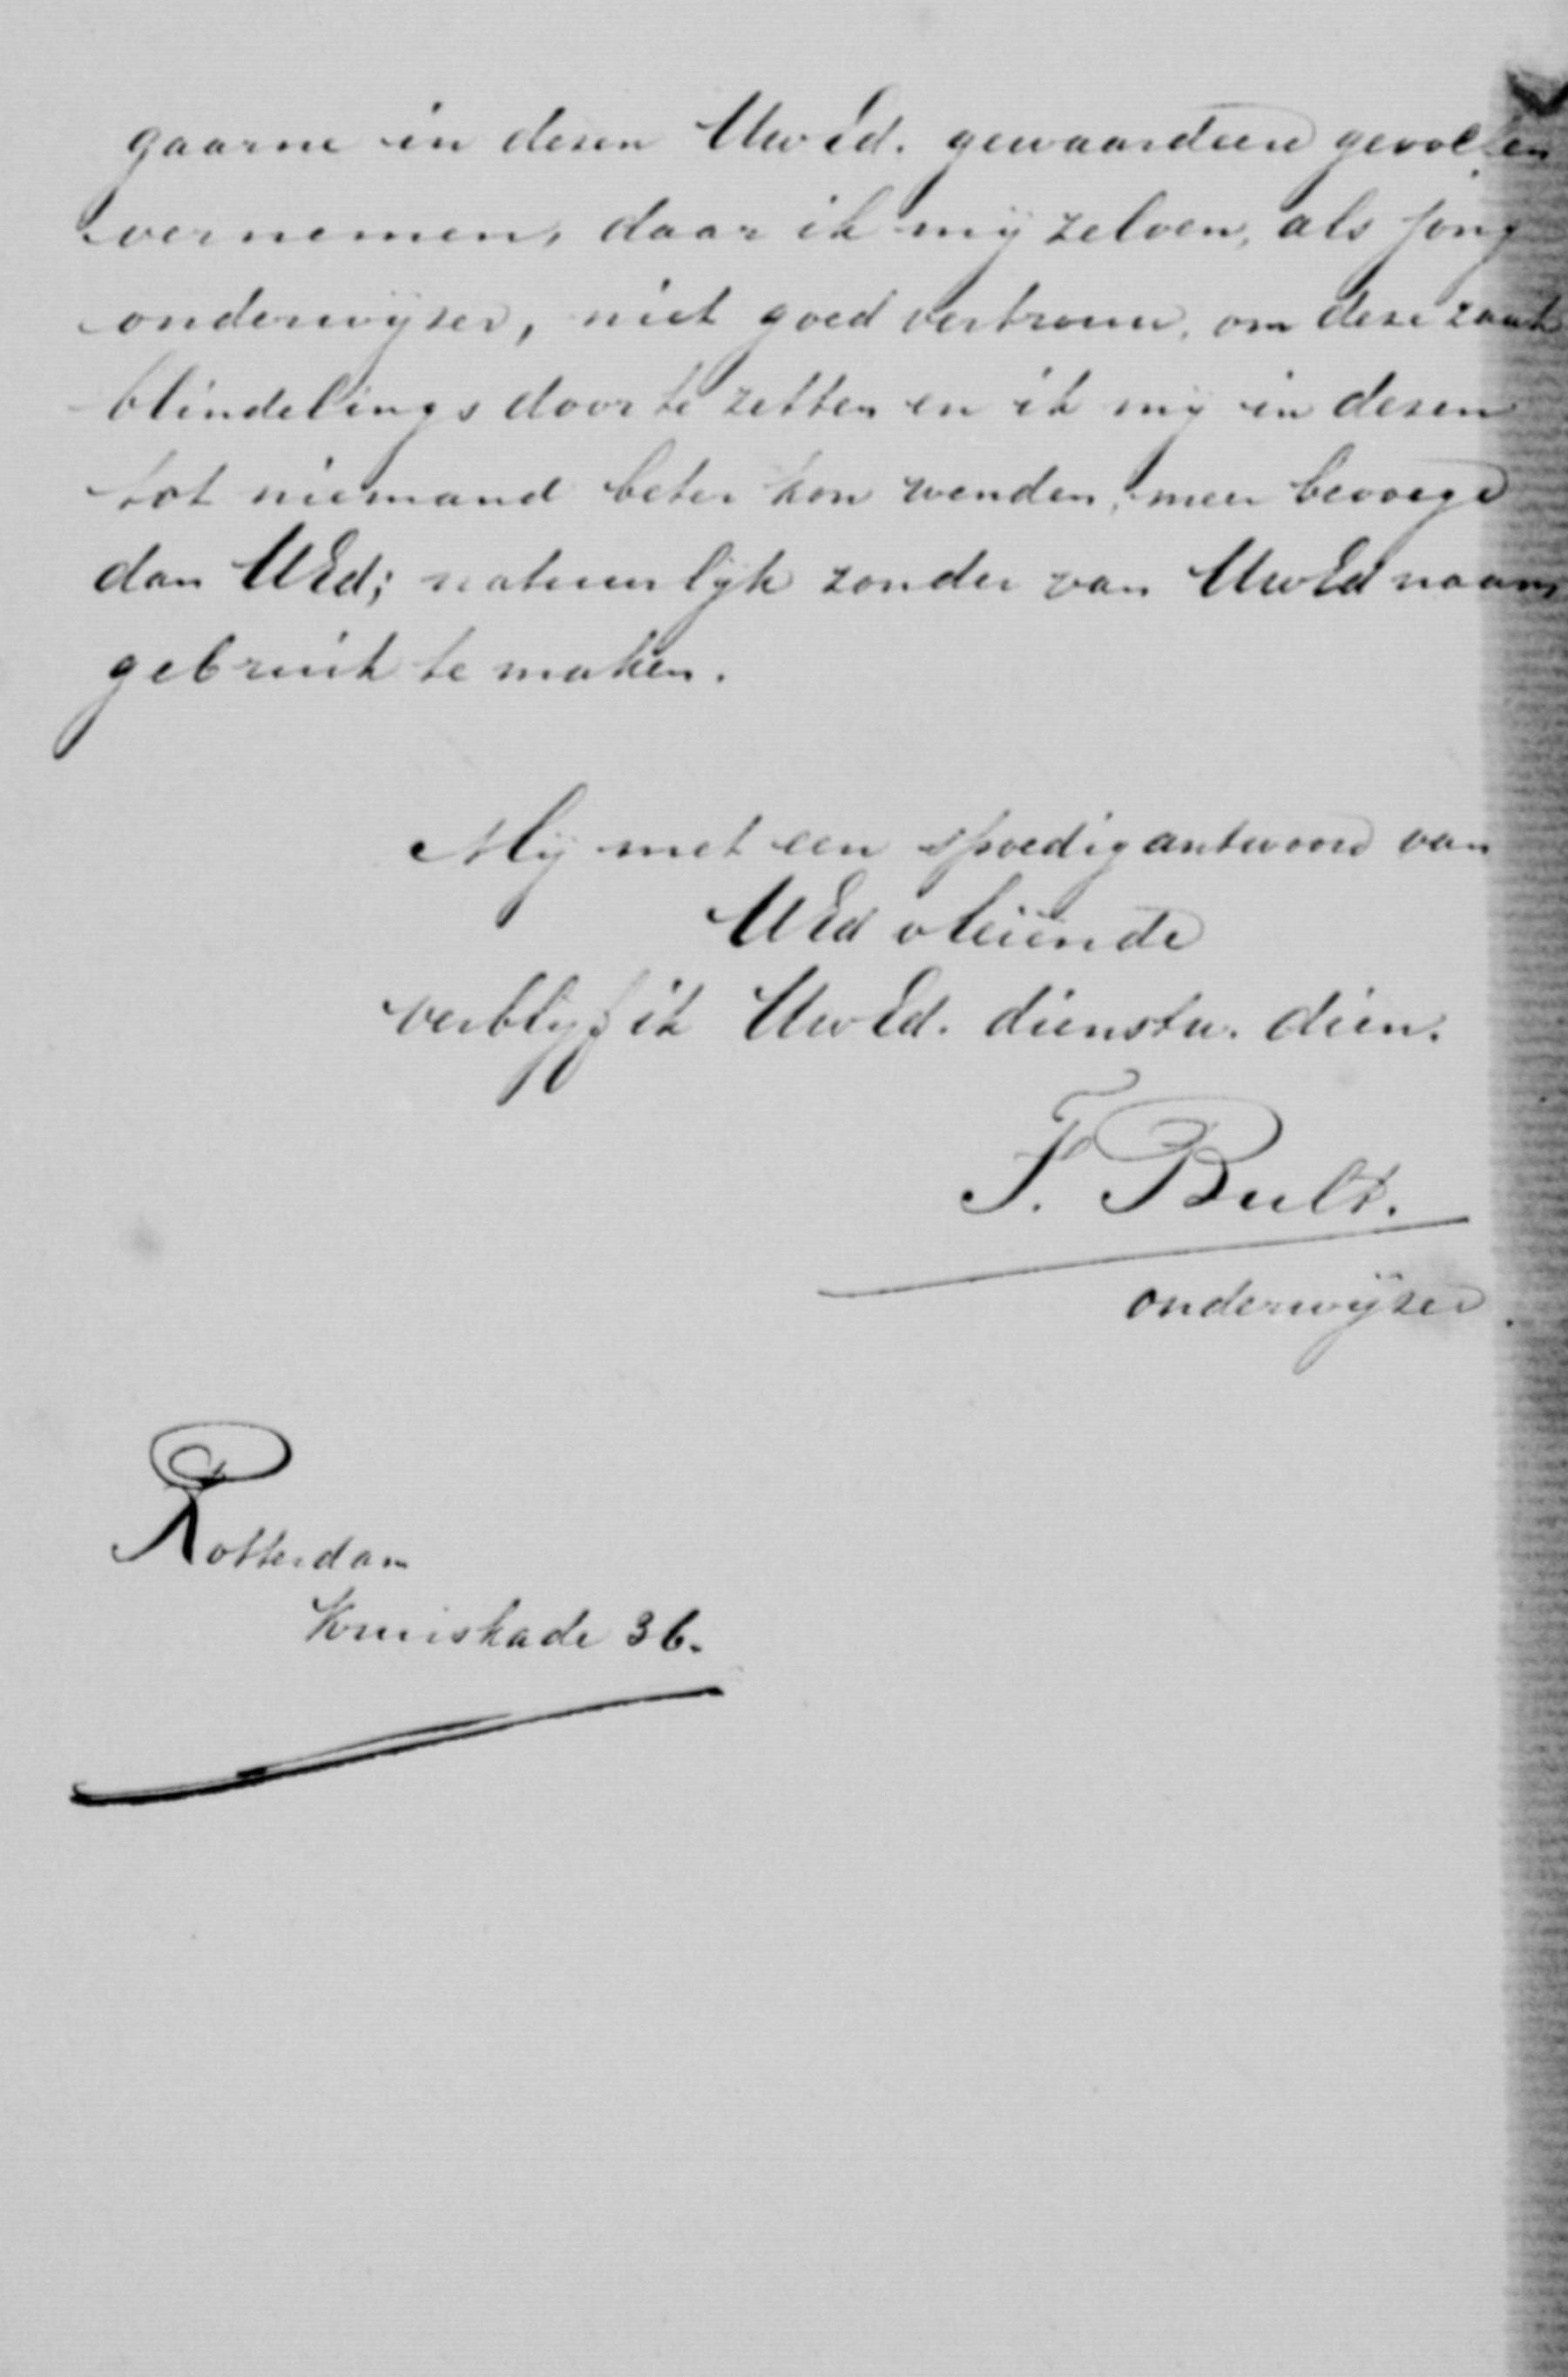 gaarne in dezen UwEd. gewaardeerd gevoelen
vernemen, daar ik mij zelven, als jong
onderwijzer, niet goed vertrouw, om deze zaak
blindelings door te zetten en ik mij in dezen
tot niemand beter kon wenden, meer bevoegd
dan UEd; natuurlijk zonder van UwEd naam
gebruik te maken.
Mij met een spoedig antwoord van
UEd vleiende
verblijf ik UwEd. dienstw. dien.
F. Bult.
onderwijzer.
Rotterdam
Kruiskade 36.